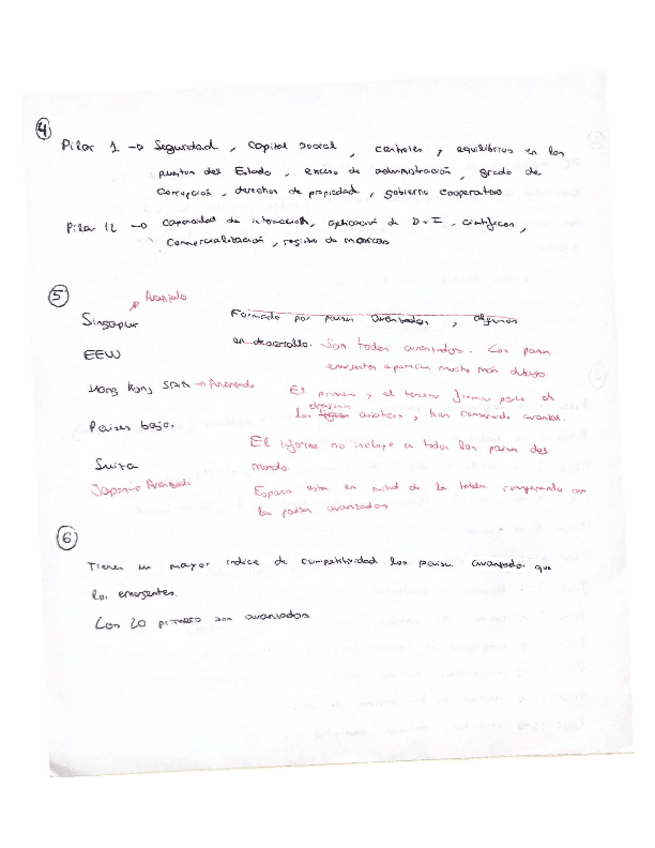 4
Pilar 1 → Seguridad, Capital social, controles y equilibrios en los
puntos del Estado, exceso de administración, grado de
Corrupción, derechos de propiedad, gobierno cooperativo
Pilar 12 → capacidad de interacción, aplicación de D+I, científicos,
Comercialización, registro de marcas
5
Avanzado
Singapur
Formado por países avanzados, algunos
en desarrollo. Son todos avanzados. Los países
EEUU
emergentes aparecen mucho más abajo.
Hong Kong SPAR → Avanzado
El primero y el tercero forman parte de
dragones
los tigres asiáticos, y han comenzado
Países bajo.
El Informe no incluye a todos los países del
Suiza
mundo.
Japon → Avanzado
España esta en mitad de la tabla comparando con
los países avanzados
6
Tienen un mayor indice de competitividad los países avanzados que
los emergentes.
Los 20 primeros son avanzados